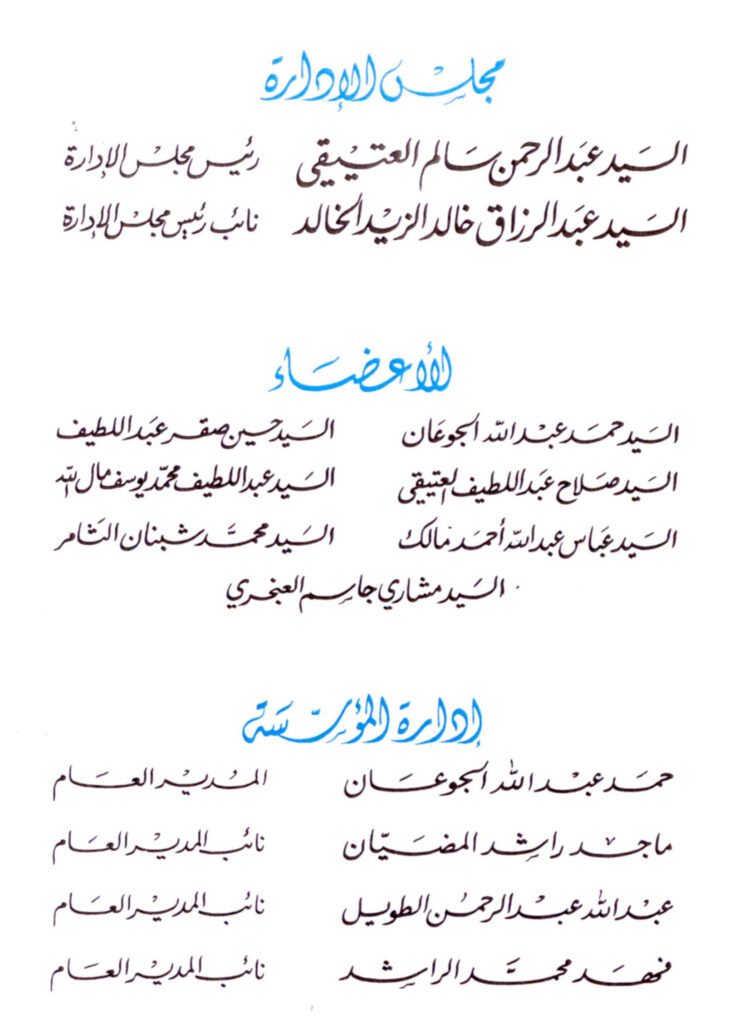 مجلس الإدارة
السيد عبد الرحمن سالم العتيقي رئيس مجلس الإدارة
السيد عبد الرزاق خالد الزيد الخالد نائب رئيس مجلس الإدارة
الأعضاء
السيد حمد عبد الله الجوعان السيد حسين صقر عبد اللطيف
السيد صلاح عبد اللطيف العتيقي السيد عبد اللطيف محمد يوسف مال الله
السيد عباس عبد الله أحمد مالك السيد محمد شبنان الثامر
السيد مشاري جاسم العنجري
إدارة المؤسسة
حمد عبد الله الجوعان المدير العام
ماجد راشد المضيان نائب المدير العام
عبد الله عبد الرحمن الطويل نائب المدير العام
فهد محمد الراشد نائب المدير العام